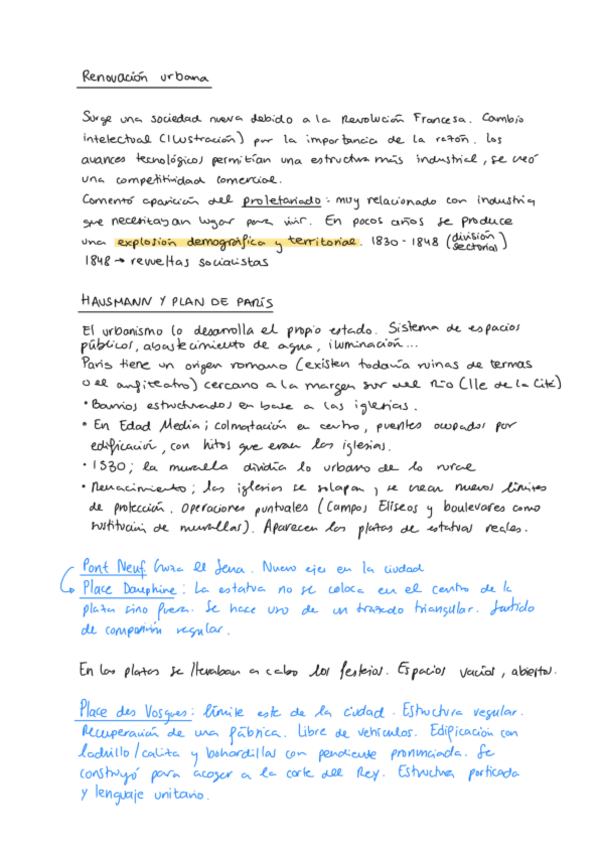 Renovación urbana
Surge una sociedad nueva debido a la Revolución Francesa. Cambio
intelectual (Ilustración) por la importancia de la razón. Los
avances tecnológicos permitían una estructura más industrial, se creó
una competitividad comercial.
Comentó aparición del proletariado: muy relacionado con industria
que necesitayan lugar para vivir. En pocos años se produce
una explosión demográfica y territorial. 1830-1848 (división sectorial)
1848 → revueltas socialistas
HAUSMANN Y PLAN DE PARÍS
El urbanismo lo desarrolla el propio estado. Sistema de espacios
públicos, abastecimiento de agua, iluminación...
París tiene un origen romano (existen todavía ruinas de termas
o el anfiteatro) cercano a la margen sur del Río (Ile de la Cité)
• Barrios estructurados en base a las iglesias.
• En Edad Media; colmatación en centro, puentes ocupados por
edificación, con hitos que eran las iglesias.
• 1530; la muralla dividía lo urbano de lo rural
• Renacimiento; las iglesias se solapan, se crean nuevos límites
de protección. Operaciones puntuales (Campos Elíseos y boulevares como
sustitución de murallas). Aparecen las plazas de estatuas reales.
Pont Neuf: Cruza el Sena. Nuevo eje en la ciudad
Place Dauphine: La estatua no se coloca en el centro de la
plaza sino fuera. Se hace uso de un trazado triangular. Sentido
de composición regular.
En las plazas se llevaban a cabo los festejos. Espacios vacíos, abiertos.
Place des Vosgues: límite este de la ciudad. Estructura regular.
Recuperación de una fábrica. Libre de vehículos. Edificación con
ladrillo/caliza y bohardillas con pendiente pronunciada. Se
construyó para acoger a la corte del Rey. Estructura porticada
y lenguaje unitario.